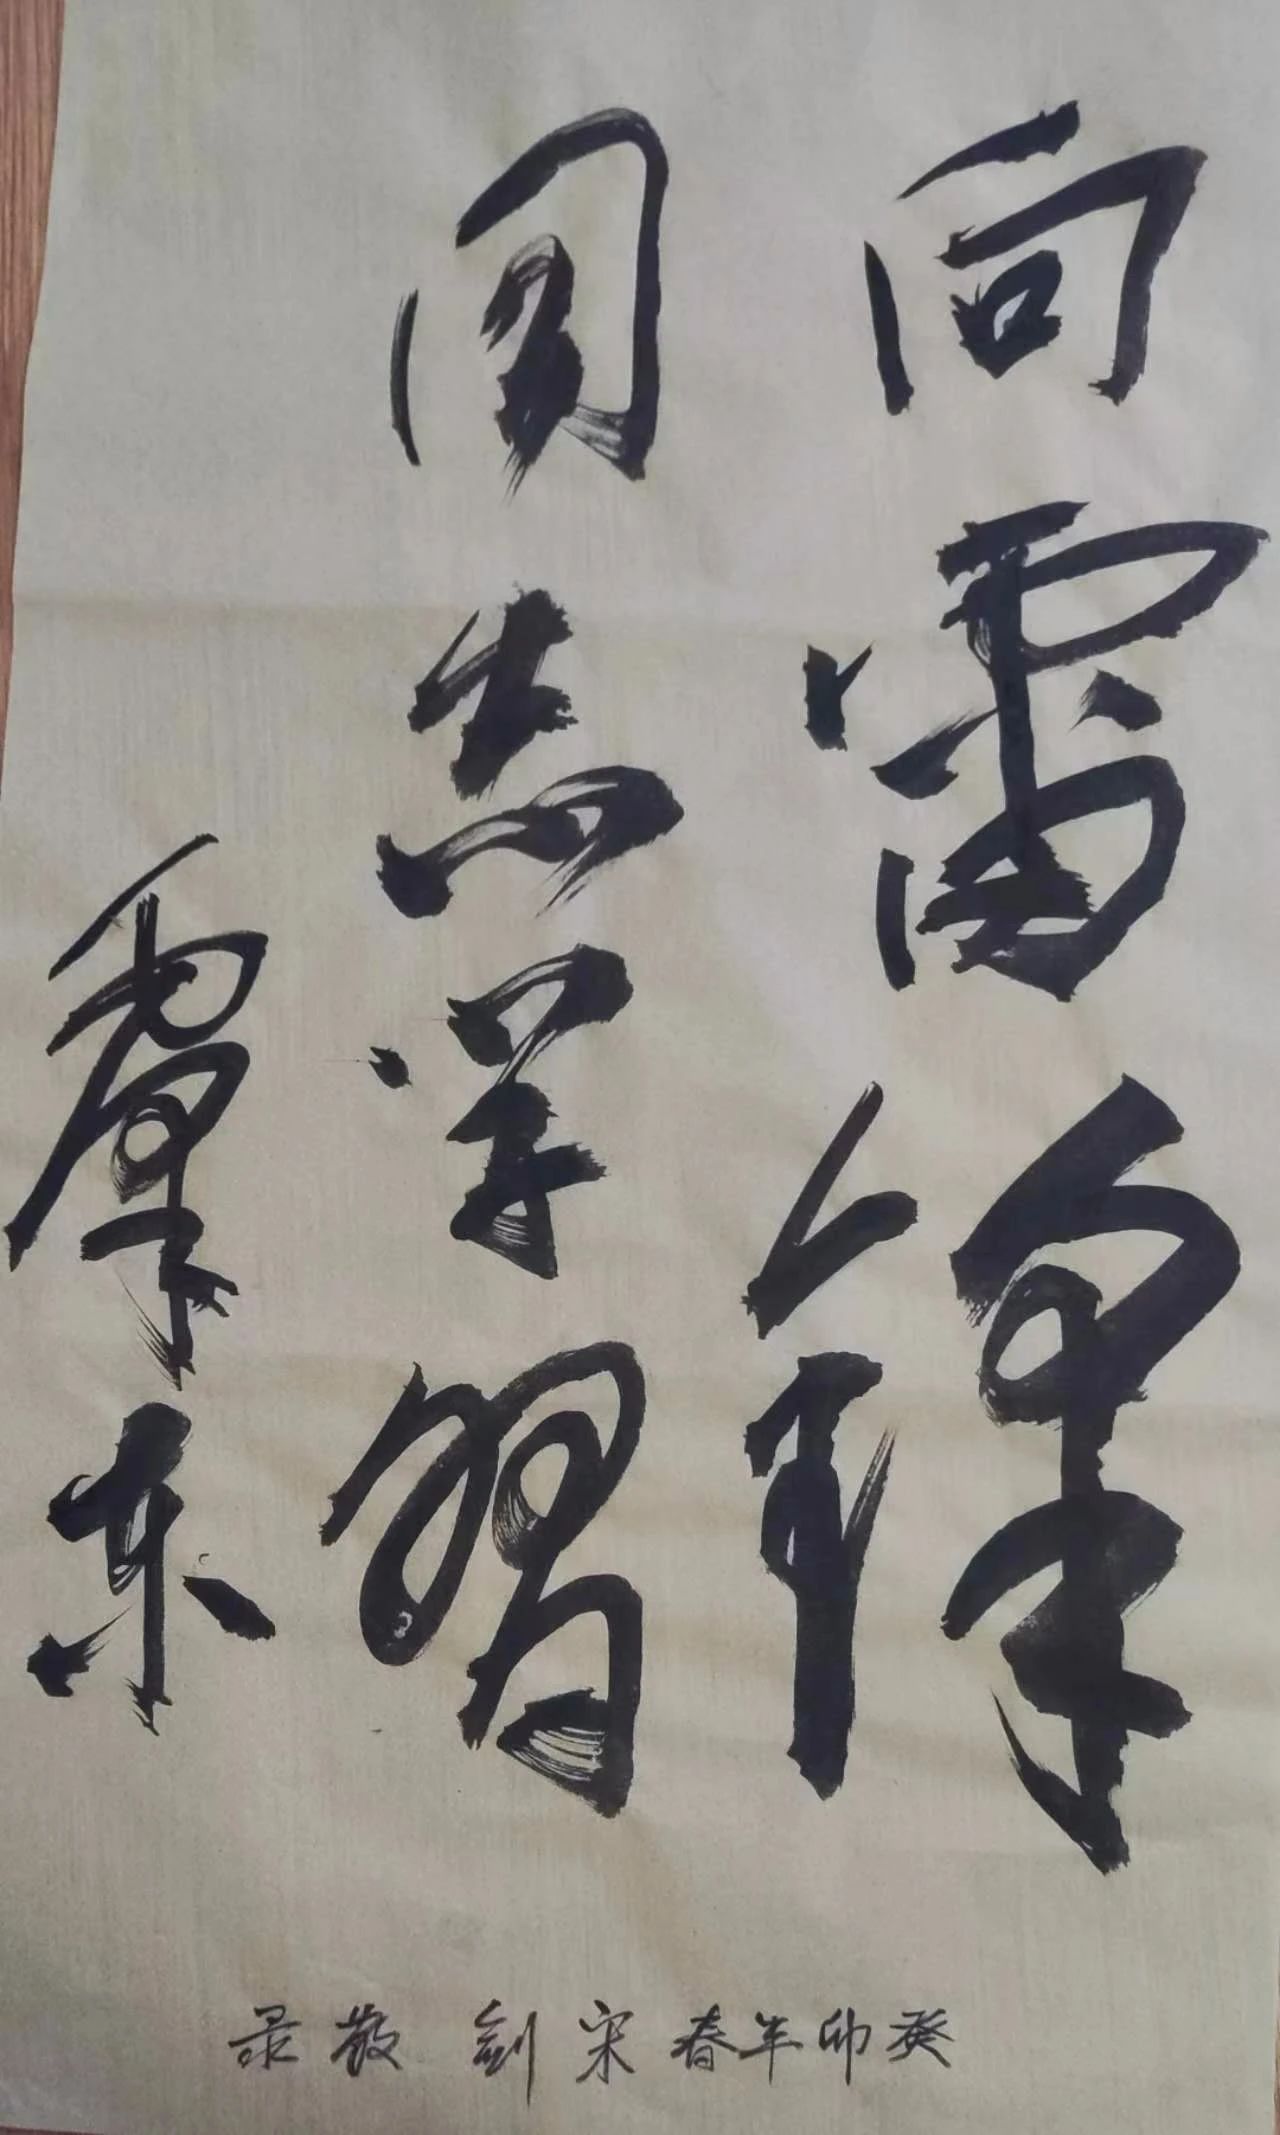 向雷鋒
同志学習
毛泽东
癸卯年春宋剑敬录